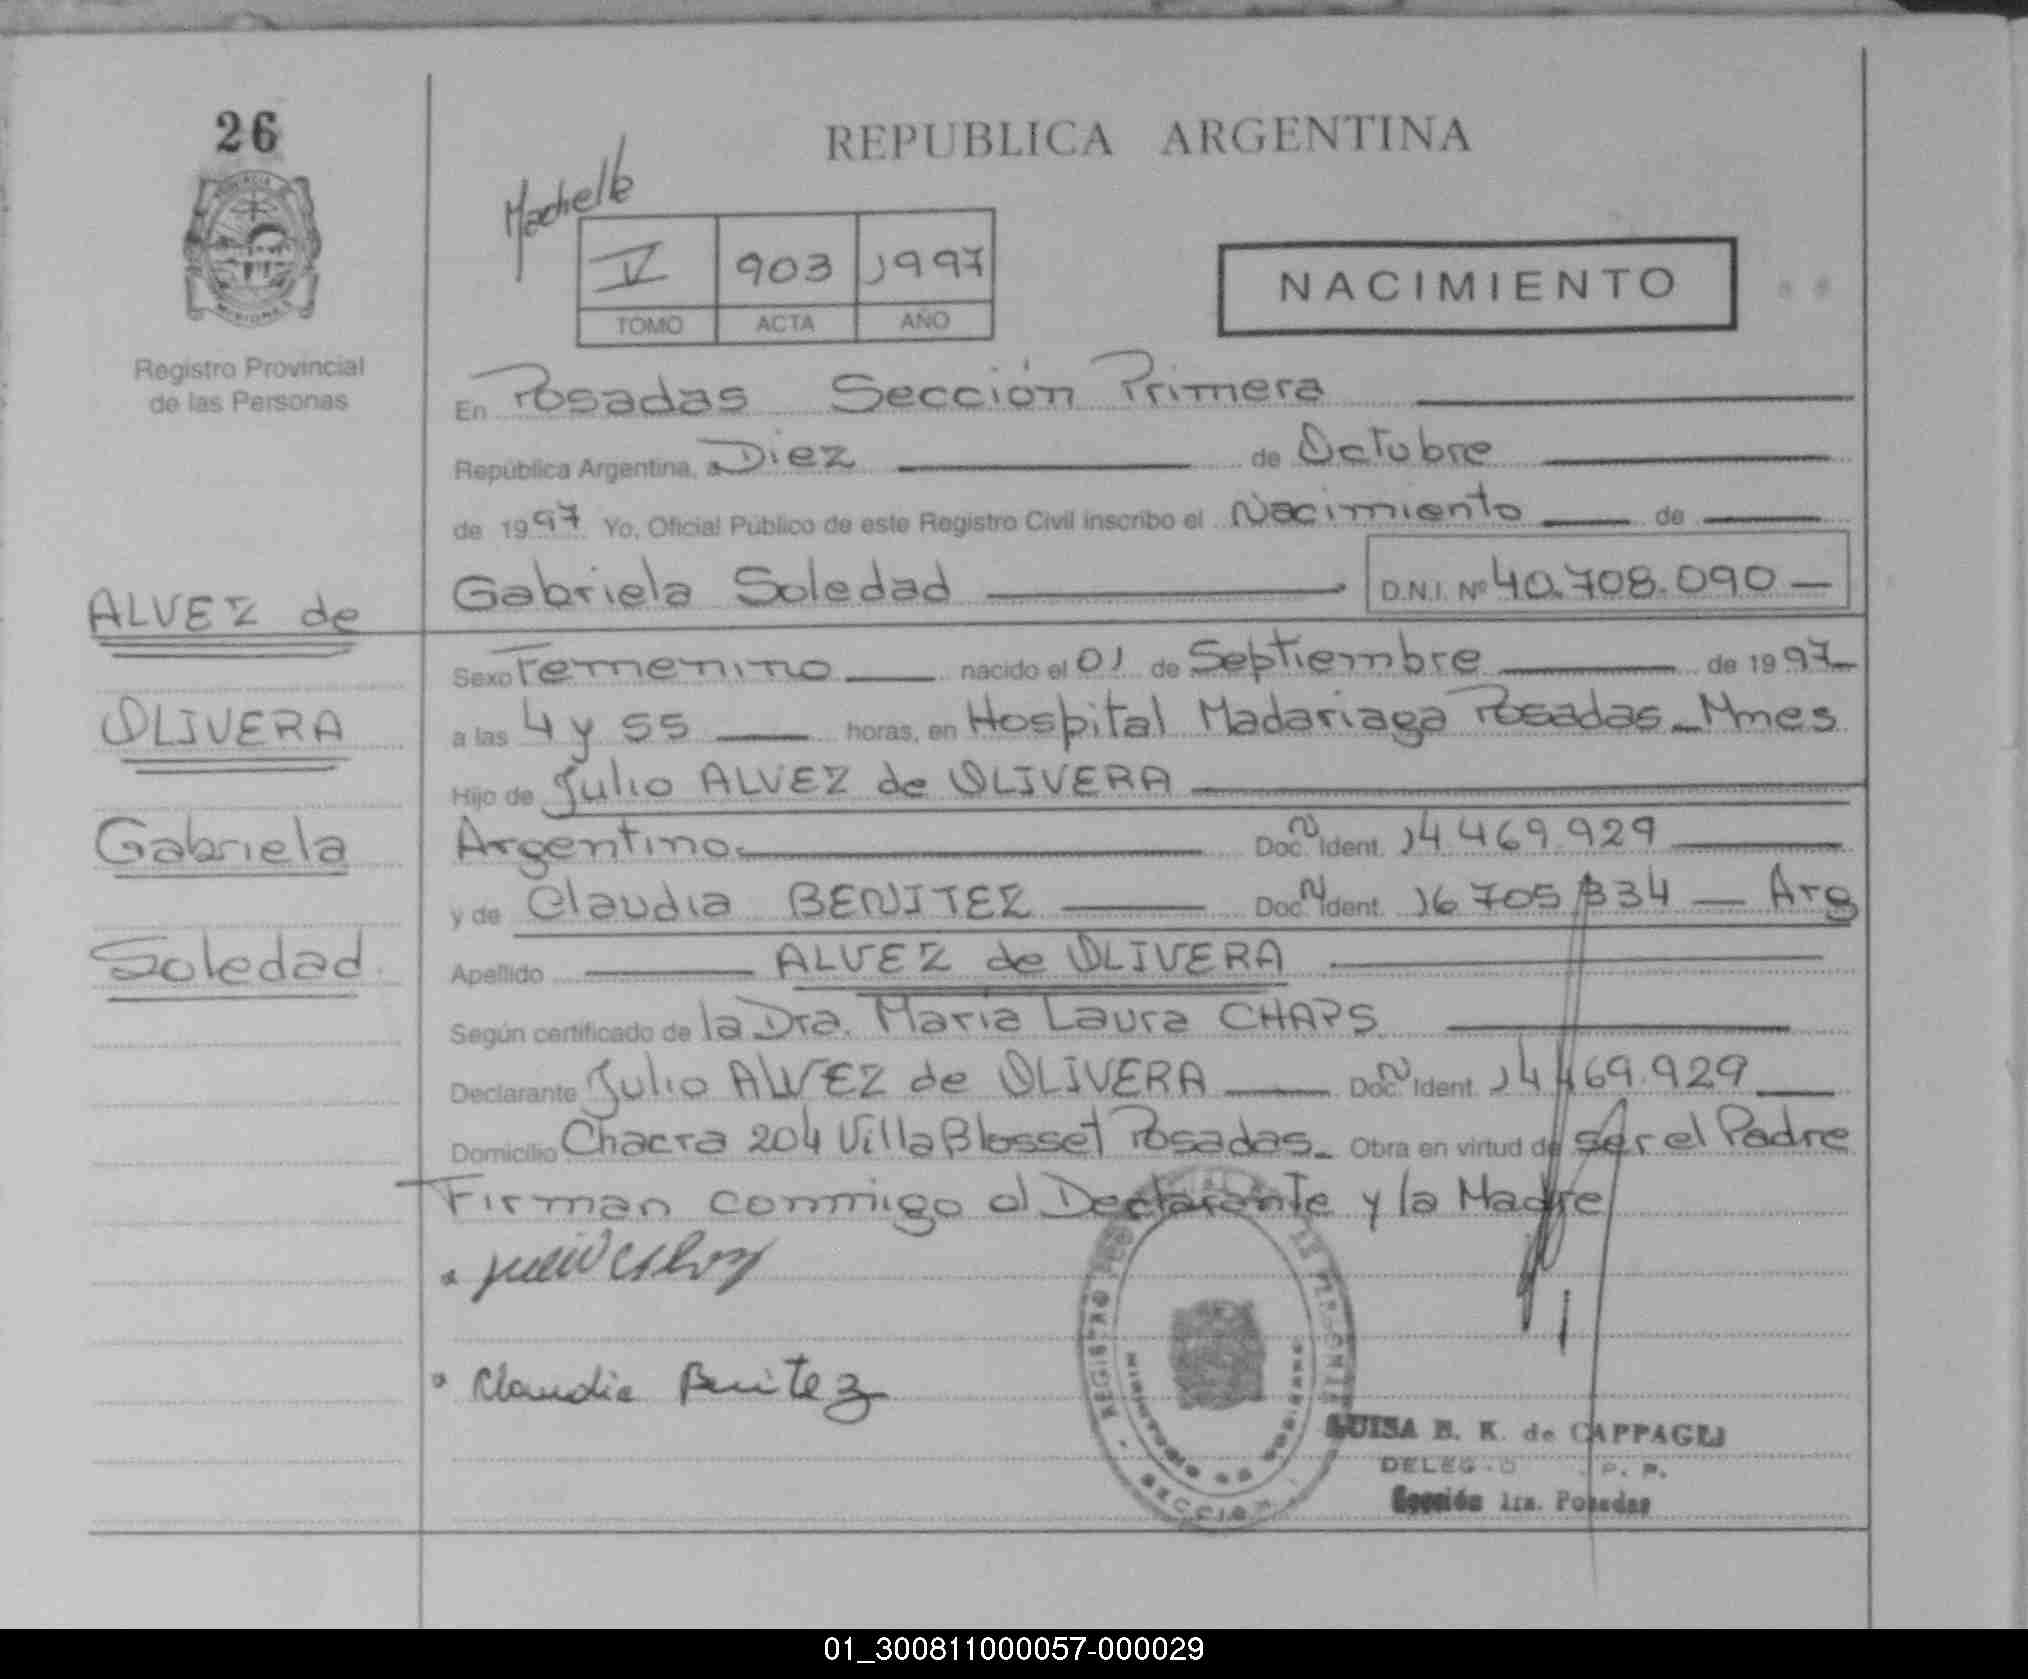 26
Registro Provincial
de las Personas
ALVEZ de
OLIVERA
Gabriela
Soledad
REPUBLICA ARGENTINA
V 903 1997
TOMO ACTA AÑO
NACIMIENTO
En Posadas Sección Primera
República Argentina, a Diez de Octubre
de 1997 Yo, Oficial Público de este Registro Civil inscribo el Nacimiento de
Gabriela Soledad D.N.I. Nº 40.708.090
Sexo Femenino nacido el 01 de Septiembre de 1997
a las 4 y 55 horas, en Hospital Madariaga Posadas Mnes
Hijo de Julio ALVEZ de OLIVERA
Argentino Doc. N Ident. 14.469.929
y de Claudia BENITEZ Doc. N Ident. 16.705.334 Arg
Apellido ALVEZ de OLIVERA
Según certificado de la Dra. Maria Laura CHAPS
Declarante Julio ALVEZ de OLIVERA Doc. N Ident. 14.469.929
Domicilio Chacra 204 Villa Blosset Posadas Obra en virtud de ser el Padre
Firman conmigo el Declarante y la Madre
Claudia Benitez
LUISA B. K. de CAPPAGLI
Sección 1ra. Posadas
01_300811000057-000029